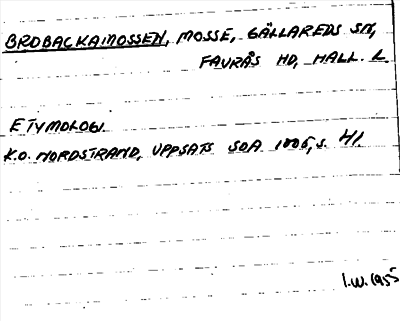 BROBACKAMOSSEN, MOSSE, GÄLLAREDS SN,
FAURÅS HD, HALL. L.
ETYMOLOGI.
K.O. NORDSTRAND, UPPSATS SOA 1006, s. 41.
I.W. 1955